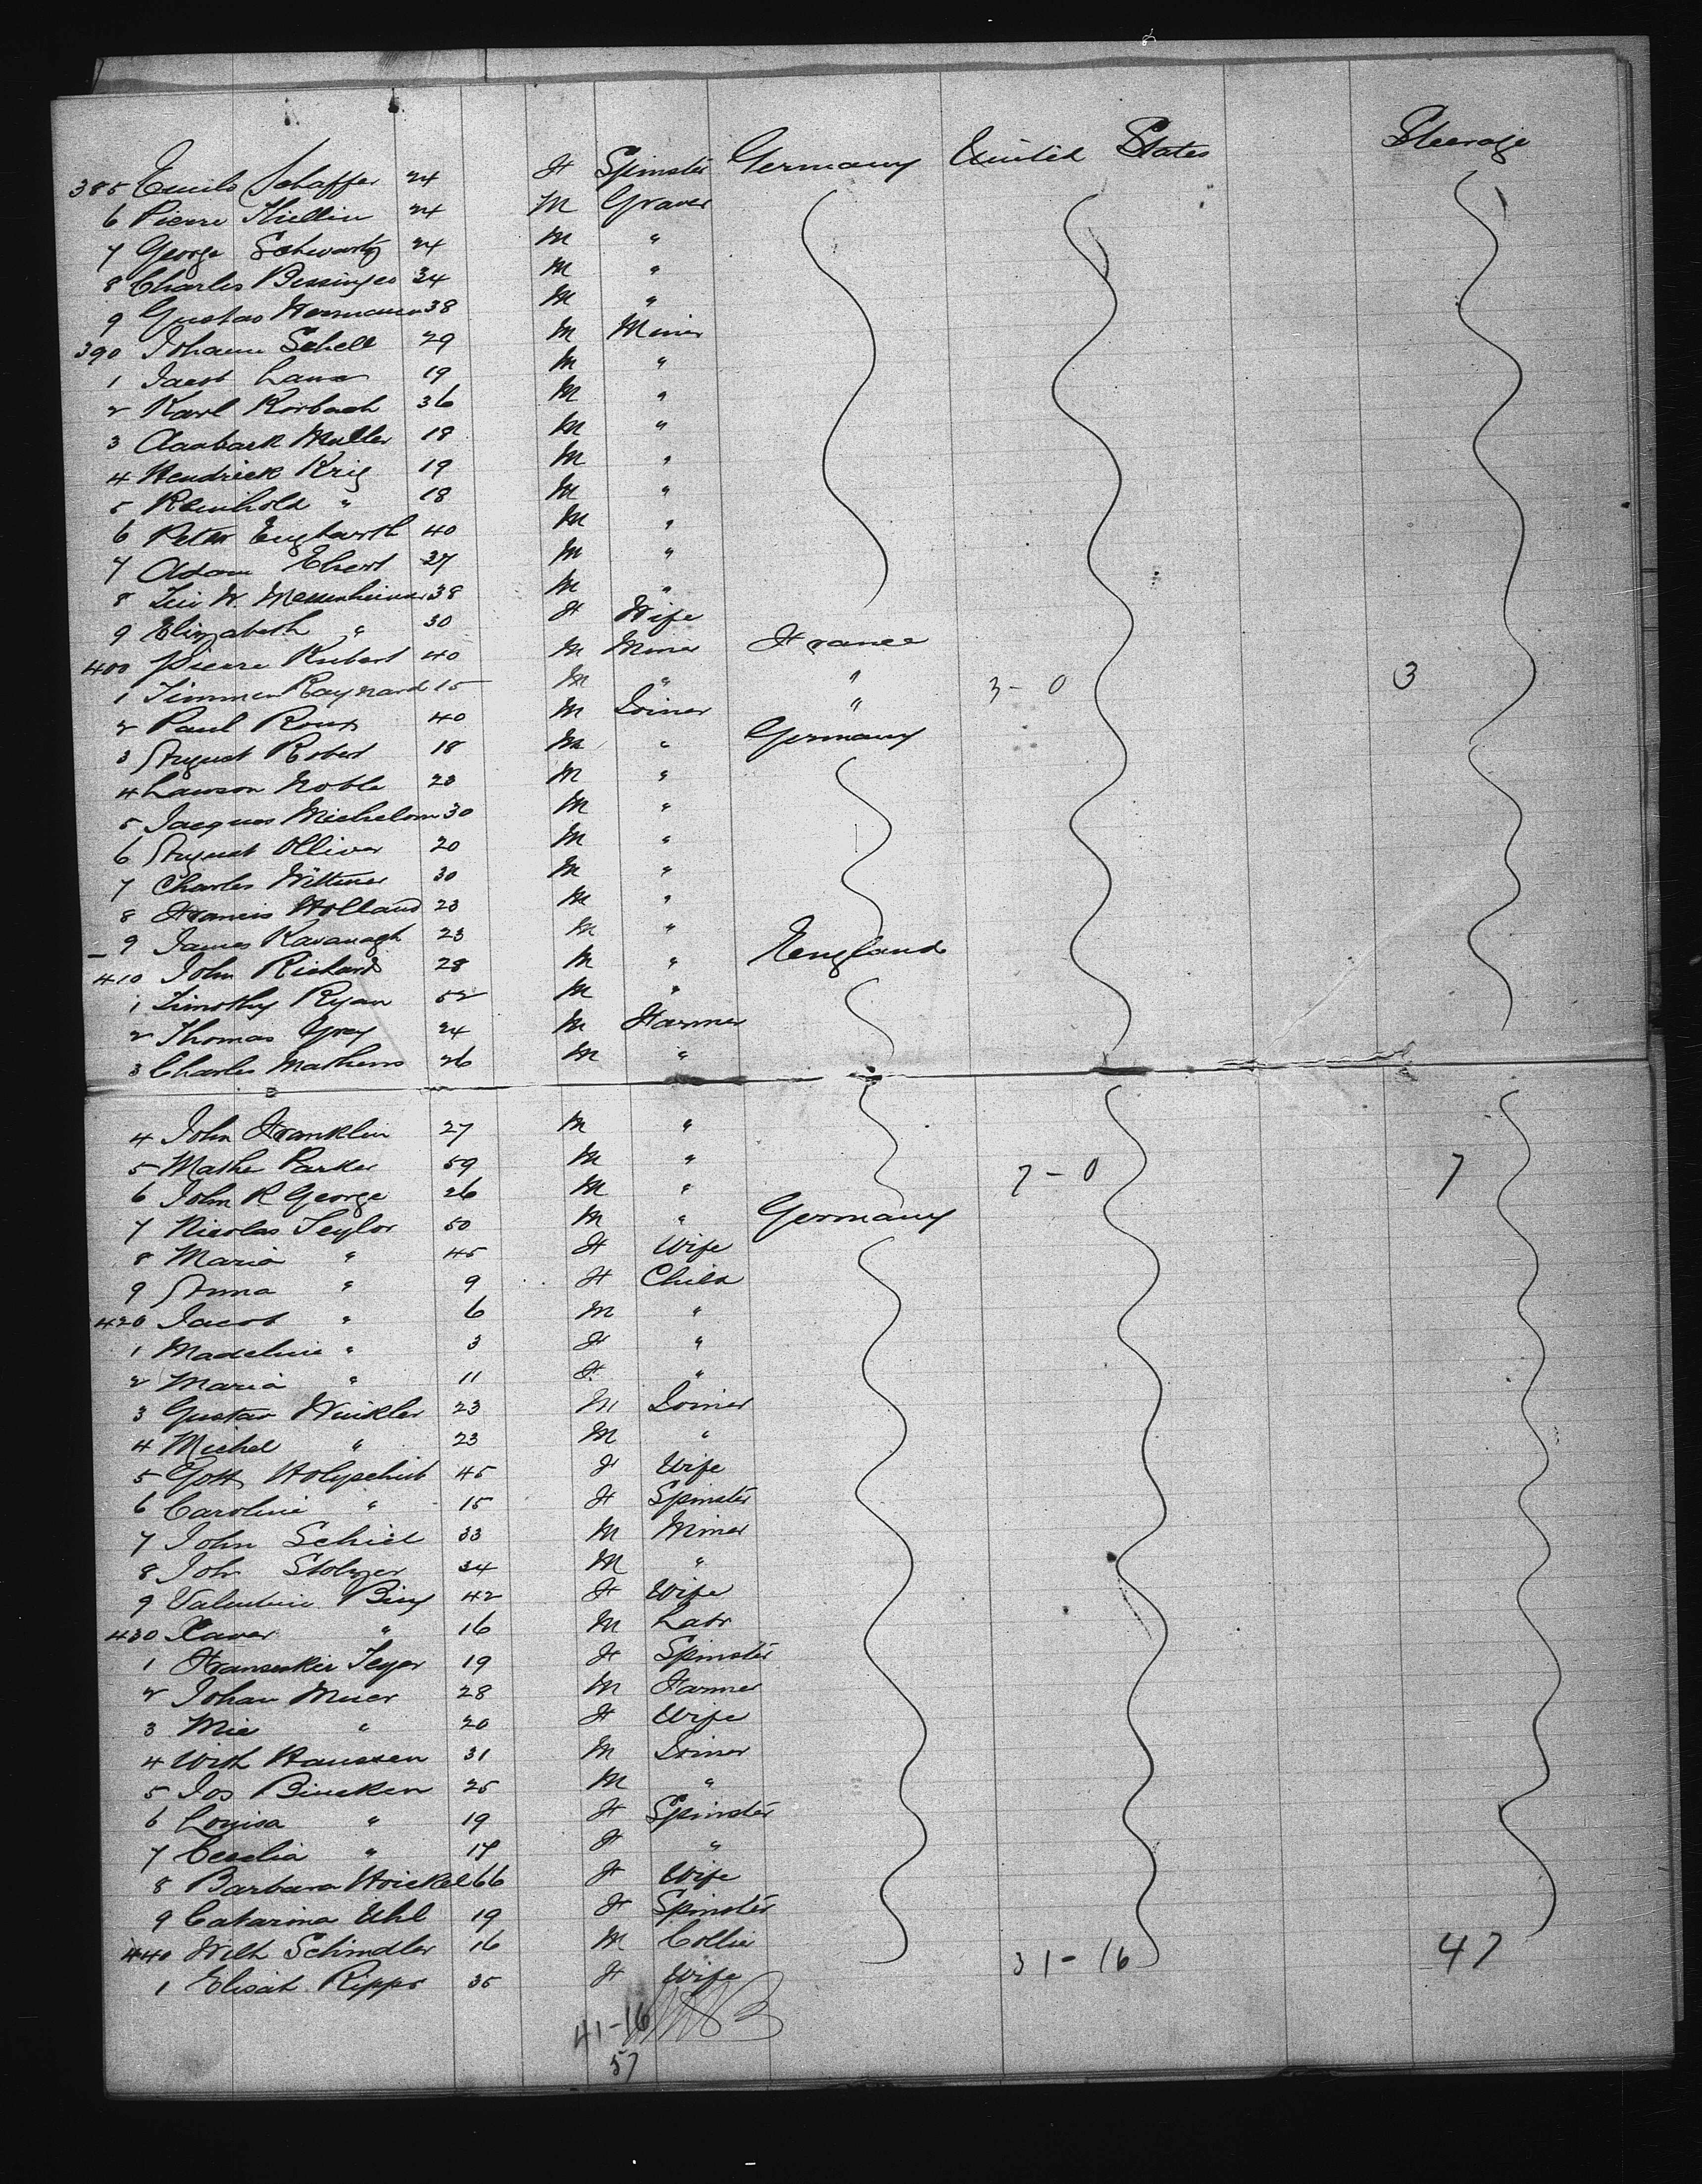 385 Emile Schaffer 24 F Spinster Germany United States Steerage
6 Pierre 24 M Graver
7 George Schwartz 24 M "
8 Charles Bessinger 34 M "
9 Gustav Hermann 38 M "
390 Johann Schell 29 M Miner
1 Jacob Laux 19 M "
2 Karl Korbach 36 M "
3 Muller 18 M "
4 Hendrick Krig 19 M "
5 Reinhold " 18 M "
6 Peter 40 M "
7 Adam Ebert 37 M "
8 W. 38 M "
9 Elizabeth " 30 F Wife
400 Pierre Kubert 40 M Miner France
1 Raynard 15 M " " 3-0 3
2 Paul Roux 40 M Joiner "
3 August Robert 18 M " Germany
4 Lawson Noble 23 M "
5 Jacques Michelom 30 M "
6 August Olliver 20 M "
7 Charles Wittmer 30 M "
8 Francis Holland 23 M "
9 James Kavanagh 23 M "
410 John Richard 28 M " England
1 Timothy Ryan 52 M "
2 Thomas Grey 24 M Farmer
3 Charles Mathews 26 M "
4 John Franklin 27 M "
5 Mathe Parker 59 M " 7-0 7
6 John R George 26 M "
7 Nicolas Seylor 50 M " Germany
8 Maria " 45 F Wife
9 Anna " 9 F Child
420 Jacob " 6 M "
1 Madeline " 3 F "
2 Maria " 11 F "
3 Gustav Winkler 23 M Joiner
4 Michel " 23 M "
5 Gott 45 F Wife
6 Caroline " 15 F Spinster
7 John Schiel 33 M Miner
8 Joh Stolzer 34 M "
9 Valentine Bing 42 F Wife
430 Xaver " 16 M Labr
1 19 F Spinster
2 Johan Meier 28 M Farmer
3 Mie " 20 F Wife
4 Wilh Hanssen 31 M Joiner
5 Jos Bincken 25 M "
6 Louisa " 19 F Spinster
7 Cecelia " 17 F "
8 Barbara Hoickel 66 F Wife
9 Catarina Uhl 19 F Spinster
440 Wilh Schindler 16 M Collier 31-16 47
1 Elisab. Ripps 35 F Wife
41-16
57